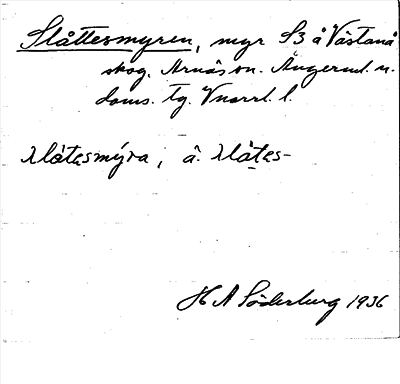 Slåttesmyren, myr S3 å Västanå
skog. Arnäs sn. Ångerml. n.
doms. tg. Vnorrl. l.
slåtasmýra, â. slåtes-
H A Söderburg 1936